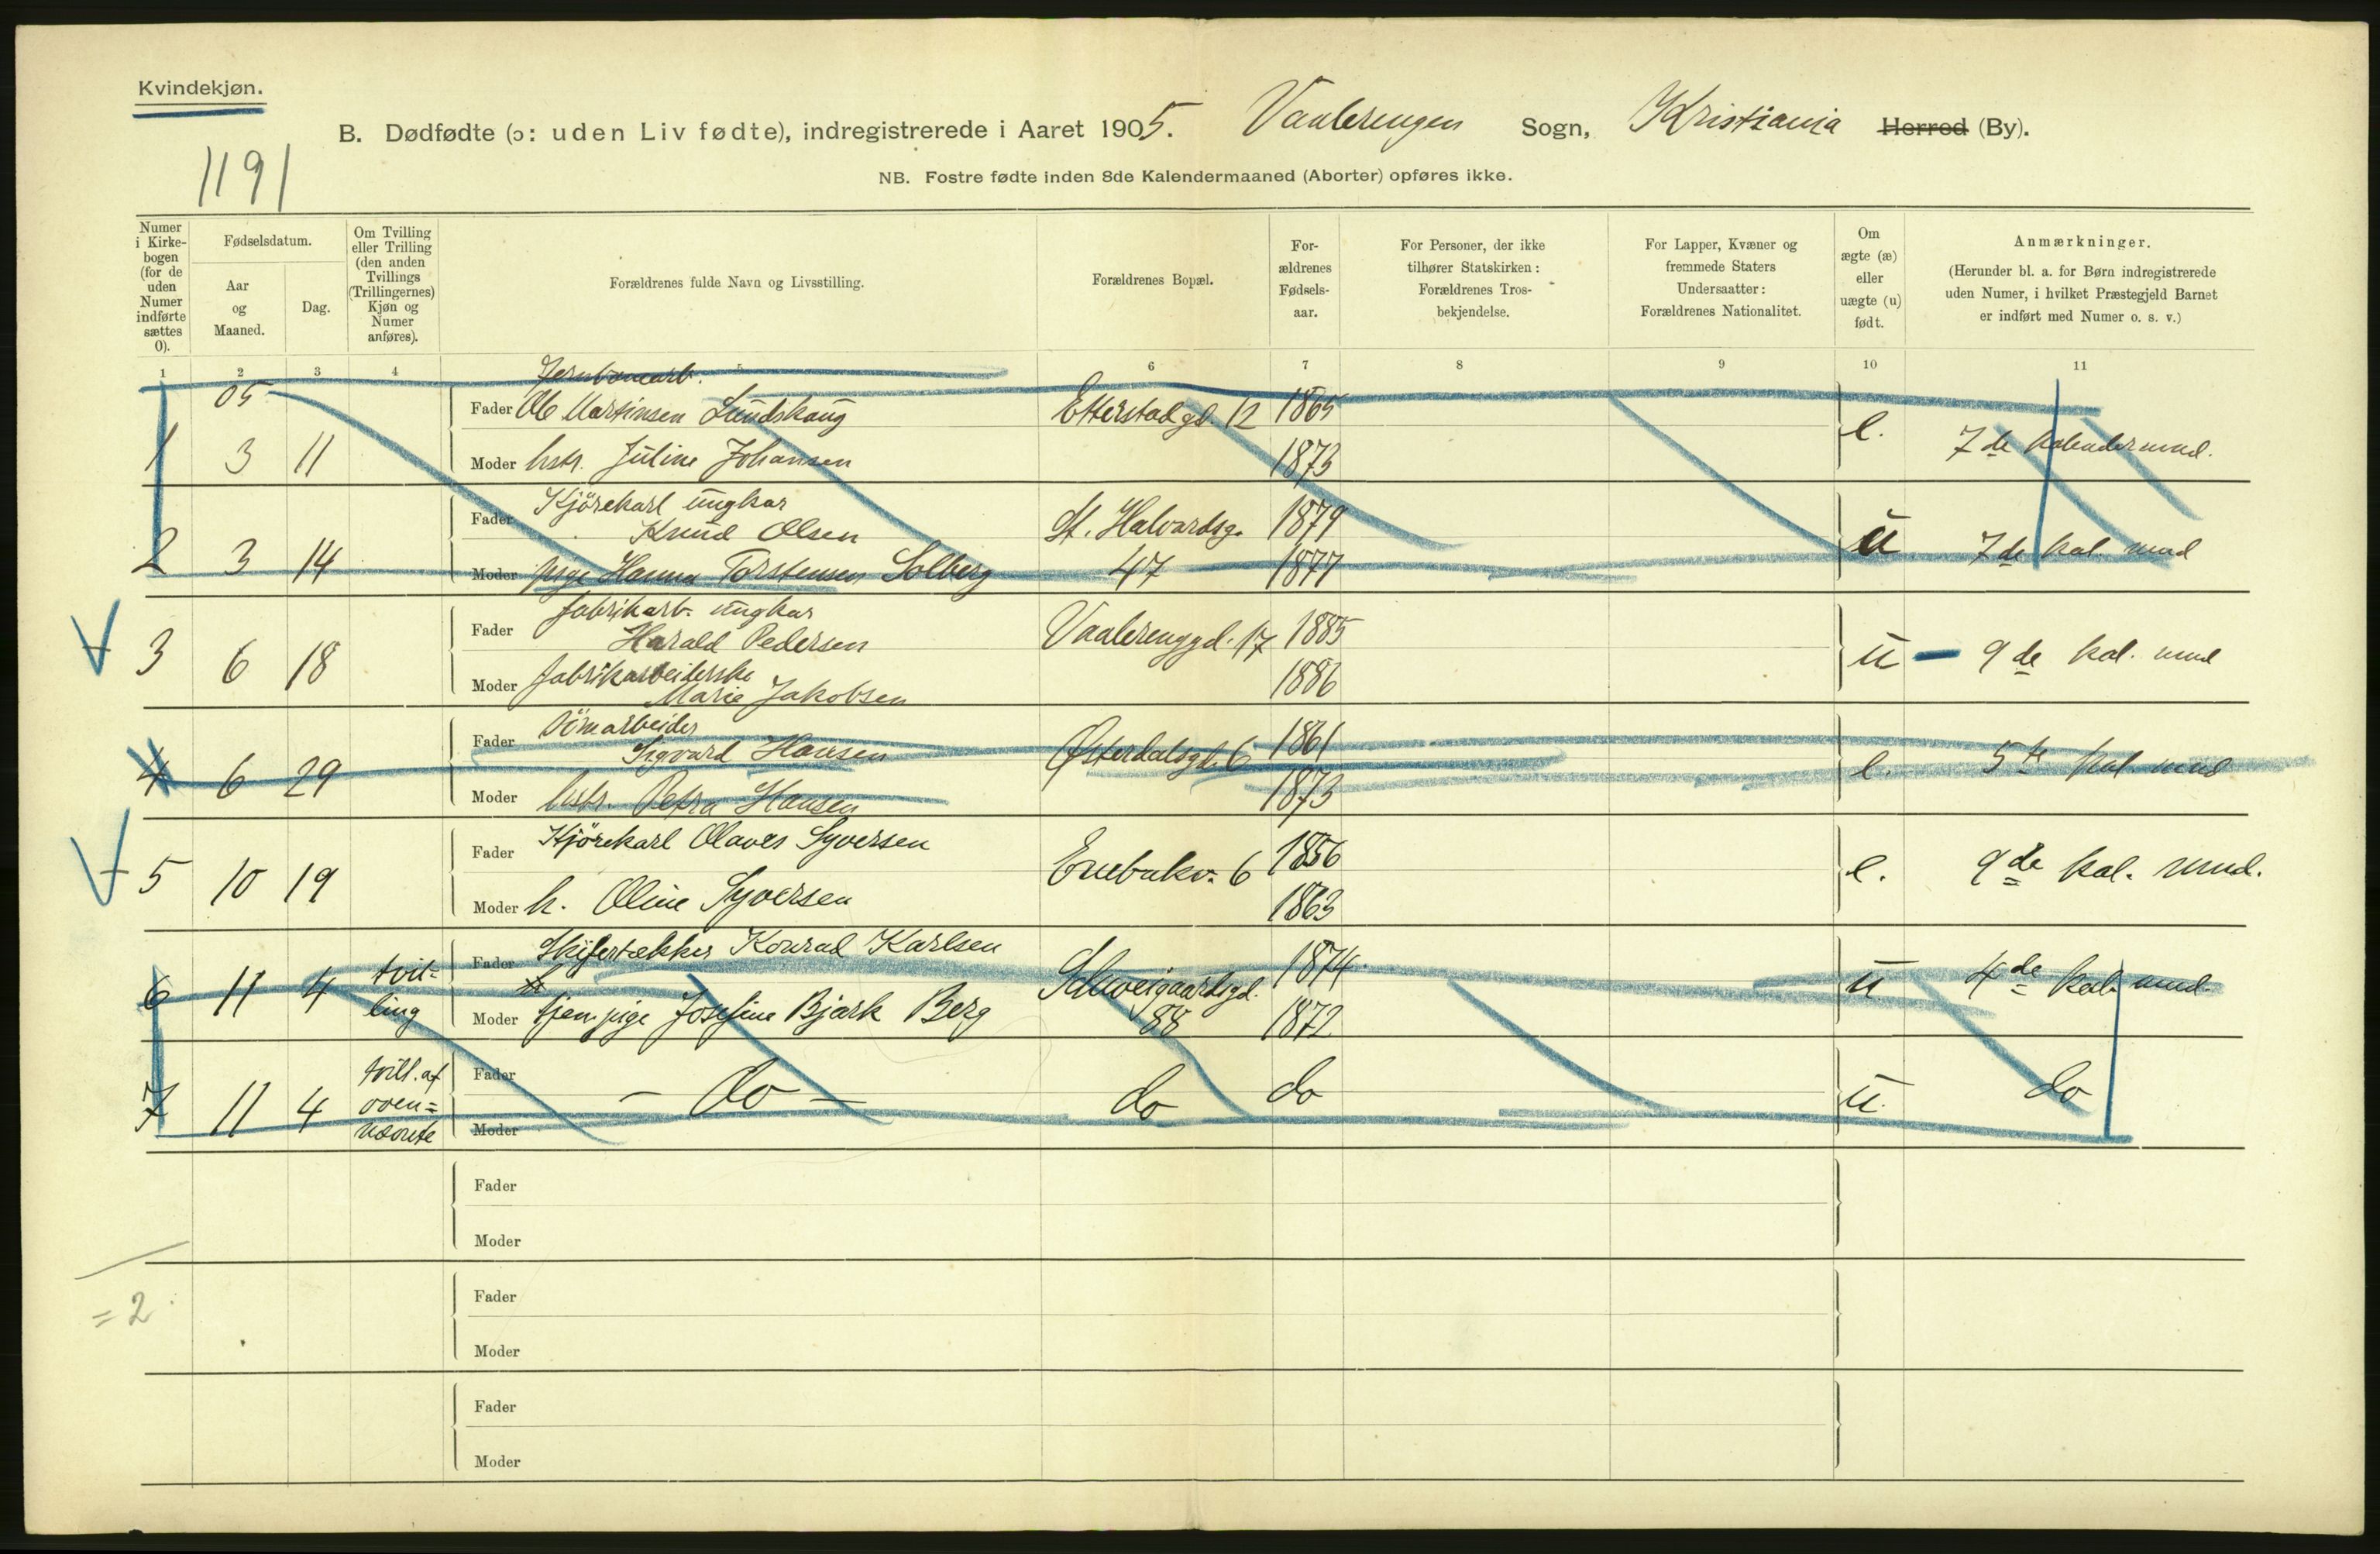 Kvindekjøn.
B. Dødfødte (ɔ: uden Liv fødte), indregistrerede i Aaret 1905. Vaalerengen Sogn, Kristiania Herred (By).
1191
NB. Fostre fødte inden 8de Kalendermaaned (Aborter) opføres ikke.
Numer i Kirke-
bogen
(for de
uden
Numer
indførte
sættes
0).
Fødselsdatum.
Aar
og
Maaned.
Dag.
Om Tvilling
eller Trilling
(den anden
Tvillings
(Trillingernes)
Kjøn og
Numer
anføres).
Forældrenes fulde Navn og Livsstilling.
Forældrenes Bopæl.
For-
ældrenes
Fødsels-
aar.
For Personer, der ikke
tilhører Statskirken:
Forældrenes Tros-
bekjendelse.
For Lapper, Kvæner og
fremmede Staters
Undersaatter:
Forældrenes Nationalitet.
Om
ægte (æ)
eller
uægte (u)
født.
Anmærkninger.
(Herunder bl. a. for Børn indregistrerede
uden Numer, i hvilket Præstegjeld Barnet
er indført med Numer o. s. v.)
1 2 3 4 5 6 7 8 9 10 11
Jernbanearb.
05 Fader Ole Martinsen Lundskaug Etterstadgd. 12 1865
1 3 11 Moder hstr. Juline Johansen 1873 e. 7de kalendermnd.
Kjörekarl ungkar
Fader Knud Olsen St. Halvardsg. 1879
2 3 14 Moder pige Hanna Torstensen Solberg 47 1877 u 7de kal. mnd
fabrikarb. ungkar
Fader Harald Pedersen Vaalerenggd. 17 1885
3 6 18 u - 9de kal. mnd
Moder fabrikarbeiderske
Marie Jakobsen 1886
Fader Tömarbeider
Sigvard Hansen Østerdalsgd. 6 1861
4 6 29 e. 5te kal. mnd
Moder hstr. Petra Hansen 1873
Fader Kjörekarl Olaves Syversen 1856
5 10 19 Enebakv. 6 e. 9de kal. mnd.
Moder h. Oline Syversen 1863
Fader Skifertækker Konrad Karlsen 1874
6 11 4 tvil-
ling Schweigaardsgd. u 4de kal. mnd.
Moder tjen. pige Josefine Bjark Berg 88 1872
7 11 4 tvill. af
oven=
nævnte
Fader - do - do do u. do
Moder
Fader
Moder
= 2
Fader
Moder
Fader
Moder